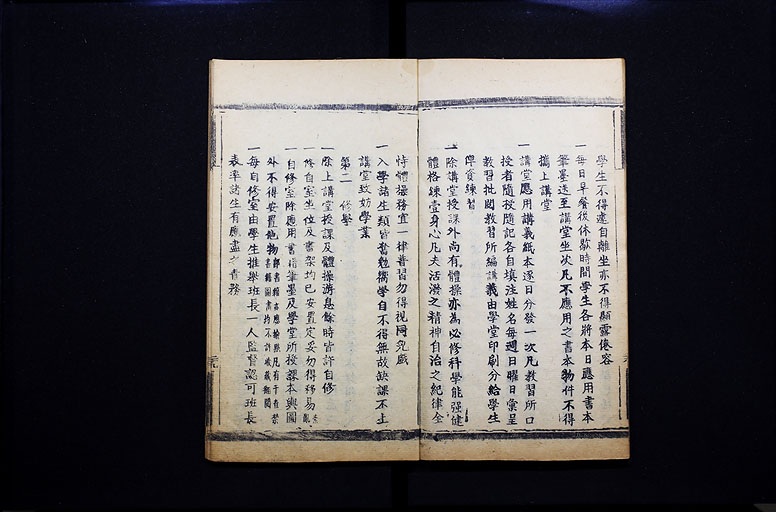 學生不得違自離坐亦不得顯露倦容
一每日早餐後休歇時間學生各將本日應用書本
筆墨送至講堂坐次凡不應用之書本物件不得
攜上講堂
一講堂應用講義紙本逐日分發一次凡教習所口
授者隨授隨記各自填注姓名每週日曜日彙呈
教習批閱教習所編講義由學堂印刷分給學生
俾資練習
一除講堂授課外尚有體操亦為必修科學能强健
體格練壹身心凡夫活潑之精神自治之紀律全
恃體操務宜一律普習勿得視同兒戲
一入學諸生類皆奮勉嚮學自不得無故缺課不上
講堂致妨學業
第二 修學
一除上講堂授課及體操游息餘時皆許自修
一修自室坐位及書架均已安置定妥勿得移易
一自修室除應用書籍筆墨及學堂所授課本輿圖
外不得安置他物
書籍圖書均不許收藏翻閱
一每自修室由學生推舉班長一人監督認可班長
表率諸生有應盡之責務